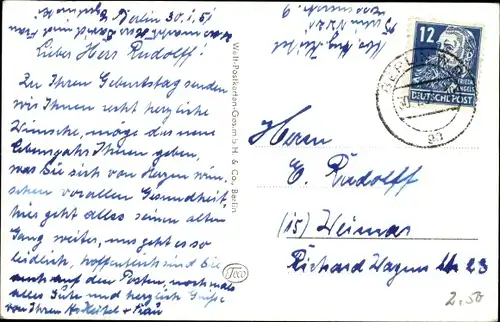 Berlin 30.1.51
Lieber Herr Rudolff!
Zu Ihrem Geburtstag senden
wir Ihnen recht herzliche
Wünsche, möge das neue
Lebensjahr Ihnen geben,
was Sie sich von Herzen wün-
schen vorallen Gesundheit
hier geht alles seinen alten
Gang weiter, uns geht es so
leidlich, hoffentlich sind Sie
auch auf den Posten, nochmals
alles Gute und herzlich Grüße
von Ihren Keitel + Frau
Welt-Postkarten-Ges.m.b.H. & Co., Berlin
12
ENGELS
DEUTSCHE POST
BERLIN
Herrn
E. Rudolff
(15) Weimar
Richard Wagner Str 23
2,50